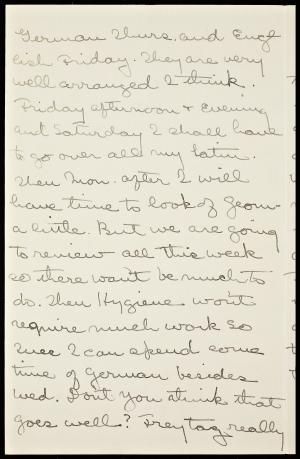 German Thurs. and Eng-
lish Friday. They are very
well arranged I think.
Friday afternoon + Evening
and Saturday I shall have
to go over all my latin.
Then Mon. after I will
have time to look of Geom-
a little. But we are going
to review all this week
so there won't be much to
do. Then Hygiene won't
require much work so
I can spend some
time of German besides
Wed. Don't you think that
goes well? Freytag really